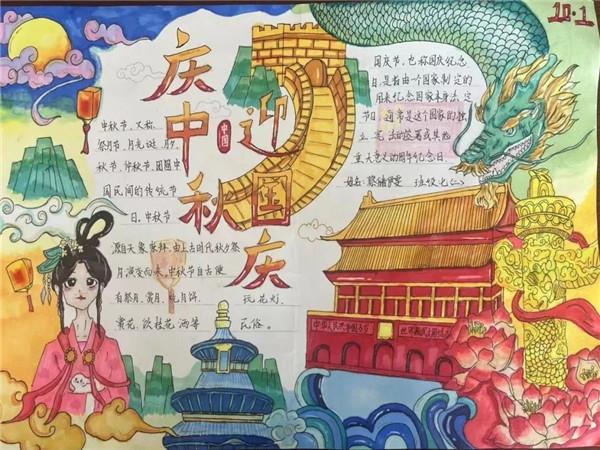 10.1
庆中秋
迎国庆
中国
中秋节，又称
祭月节、月光诞、月夕、
秋节、仲秋节、团圆中
国民间的传统节
日。中秋节
源自天象崇拜，由上古时代秋夕祭
月演变而来。中秋节自古便
有祭月、赏月、吃月饼、玩花灯、
赏花、饮桂花酒等民俗。
国庆节，也称国庆纪念
日，是指由一个国家制定的
用来纪念国家本身法定
节日，通常是这个国家的独
立、宪法的签署或其他
重大意义的周年纪念日
姓名： 班级七(二)
中华人民共和国万岁
世界人民大团结万岁